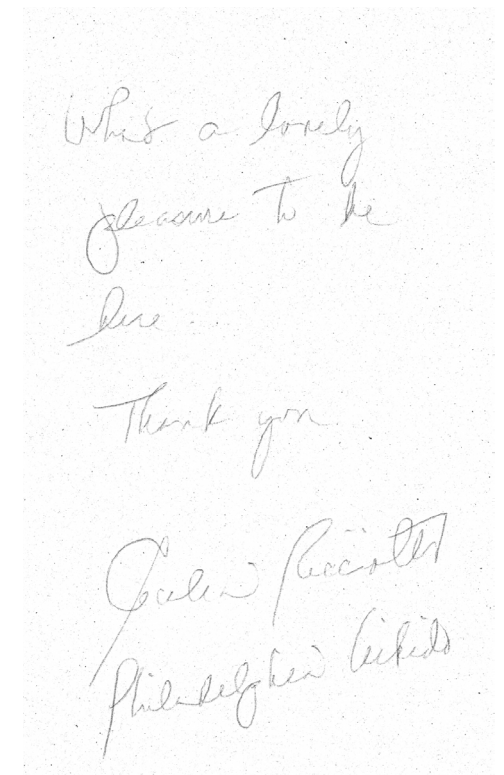 What a lovely
pleasure to be
here
Thank you
Philadelphia Aikido